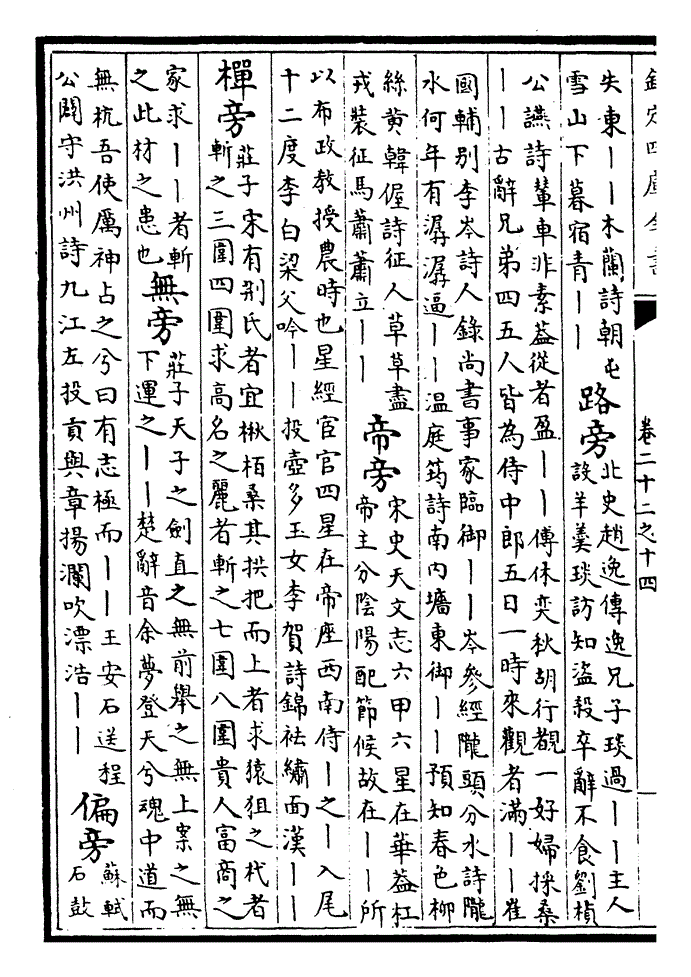 欽定四庫全書
卷二十二之十四
失東丨丨木蘭詩朝屯
雪山下暮宿青丨丨
路旁
北史趙逸傳逸兄子琰過丨丨主人
設羊羹琰訪知盜殺卒辭不食劉楨
公讌詩輦車非素葢從者盈丨丨傅休奕秋胡行覩一好婦採桑
丨丨古辭兄弟四五人皆為侍中郎五日一時來觀者滿丨丨崔
國輔别李岑詩人錄尚書事家臨御丨丨岑參經隴頭分水詩隴
水何年有潺潺逼丨丨温庭筠詩南内墻東御丨丨預知春色柳
絲黄韓偓詩征人草草盡
戎裝征馬蕭蕭立丨丨
帝旁
宋史天文志六甲六星在華葢杠
帝主分陰陽配節候故在丨丨所
以布政教授農時也星經宦官四星在帝座西南侍丨之丨入尾
十二度李白梁父吟丨丨投壺多玉女李賀詩錦袪繡面漢丨丨
樿旁
莊子宋有别氏者宜楸栢桑其拱把而上者求猿狙之杙者
斬之三圍四圍求高名之麗者斬之七圍八圍貴人富商之
家求丨丨者斬
之此材之患也
無旁
莊子天子之劍直之無前舉之無上案之無
下運之丨丨楚辭音余夢登天兮魂中道而
無杭吾使厲神占之兮曰有志極而丨丨王安石送程
公闢守洪州詩九江左投貢與章揚瀾吹漂浩丨丨
偏旁
蘇軾
石鼓